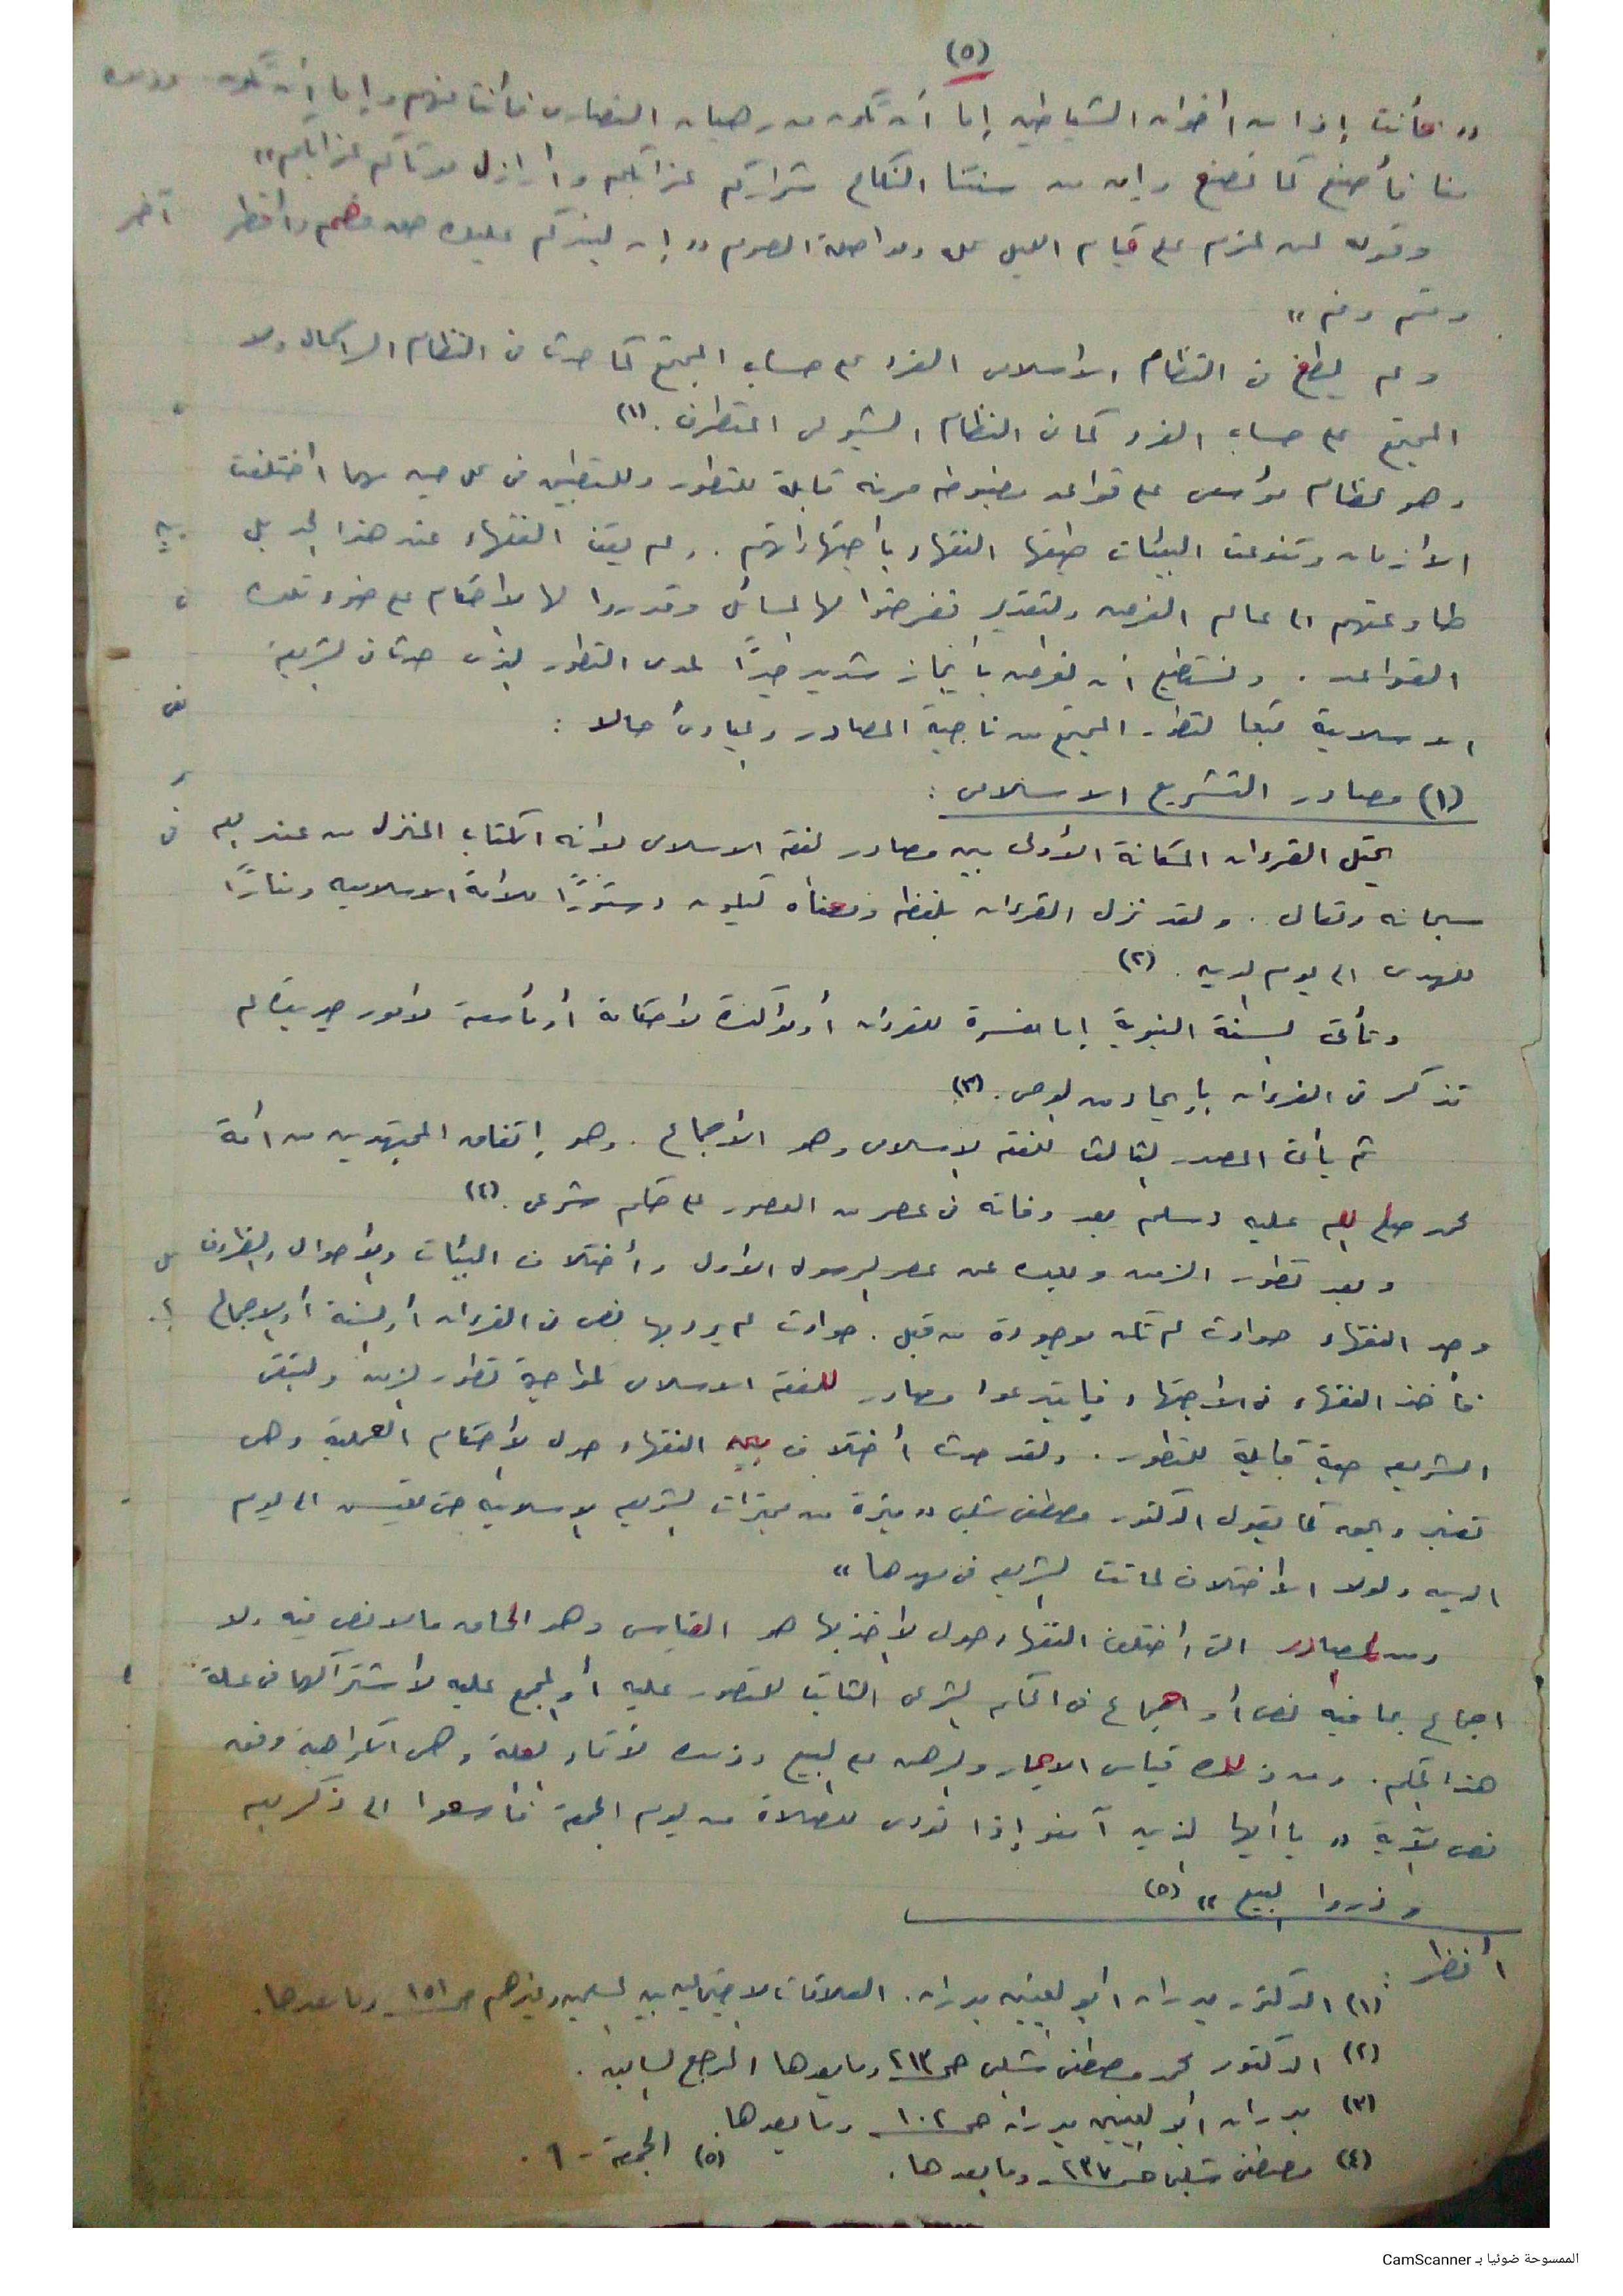 (٥)
« فأنت إذا من اخوان الشياطين إما أن تكون من رهبان النصارى فأنت منهم وإما أن تكون
منا فأصنع كما نصنع وإن من سنتنا النكاح شراركم عزابكم وأراذل موتاكم عزابكم »
وقوله لمن عزم على قيام الليل ومواصلة الصوم « إن لبدنكم عليك حق فصم وافطر
وقم ونم »
ولم يطغ في النظام الاسلامى الفرد على حساب المجتمع كما حدث في النظام الرأسمالى ولا
المجتمع على حساب الفرد كما في النظام الشيوعى المتطرف . (١)
وهو نظام مؤسس على قواعد مضبوطه مرنه قابلة للتطور وللتطبيق في كل حين مهما اختلفت
الأزمان وتنوعت البيئات طبقها الفقهاء بأجتهاداتهم . ولم يقف الفقهاء عند هذا الحد بل
طاوعتهم الى عالم الفرض والتقدير ففرضوا لها المسائل وقدروا لها الاحكام على ضوء تلك
القواعد . ونستطيع أن نعرض بأيجاز شديد جدًا لمدى التطور الذى حدث في الشريعة
الاسلامية تبعا لتطور المجتمع من ناحية المصادر والمبادئ حالا :
(١) مصادر التشريع الاسلامى :
يحتل القرءان المكانة الأولى بين مصادر الفقه الاسلامى لأنه الكتاب المنزل من عند الله
سبحانه وتعالى . ولقد نزل القرءان بلفظه ومعناه ليكون دستورًا للأمة الاسلامية ومنارًا
للهدى الى يوم الدين . (٢)
وتأتى السنة النبوية إما مفسرة للقرءان أو مؤكدة لأحكامه أو مؤسسة لأمور جديدة لم
تذكر في القرءان بإيحاء من الوحى . (٣)
ثم يأتى المصدر الثالث للفقه الاسلامى وهو الأجماع . وهو إتفاق المجتهدين من أمة
محمد صلى الله عليه وسلم بعد وفاته في عصر من العصور على حكم شرعى . (٤)
وبعد تطور الزمن وبعده عن عصر الرسول الأول وأختلاف البيئات والأحوال والظروف
وجد الفقهاء حوادث لم تكن موجودة من قبل . حوادث لم يرد بها نص في القرءان أو السنة أو الاجماع
فأخذ الفقهاء في الاجتهاد فابتدعوا مصادر للفقه الاسلامى لمواجهة تطور الزمن ولتبقى
الشريعه حية قابلة للتطور . ولقد حدث أختلاف بين الفقهاء حول الاحكام العملية وهى
تعتبر وبحق كما يقول الدكتور مصطفى شلبى « ميزة من مميزات الشريعه الاسلامية حتى للقيس الى يوم
الدين ولولا الأختلاف لماتت الشريعه في مهدها »
ومن المصادر التى اختلف الفقهاء حول الأخذ بها هو القياس وهو الحاق ما لا نص فيه ولا
اجماع بما فيه نص أو اجماع في الحكم الشرعى الثابت للمنصوص عليه أو المجمع عليه لأشتراكهما في علة
هذا الحكم . ومن ذلك قياس الايجار والرهن على البيع وذلك لأتحاد العلة وهى الكراهية وفق
نص الآية « يا أيها الذين آمنو إذا نودى للصلاة من يوم الجمعة فأسعوا الى ذكر الله
وذروا البيع » (٥)
أنظر :
(١) الدكتور بدران ابو العينين بدران . العلاقات الاجتماعيه بين المسلمين وغيرهم صـ ١٥١ وما بعدها .
(٢) الدكتور محمد مصطفى شلبى صـ ٢١٣ وما بعدها المرجع السابق .
(٣) بدران ابو العينين بدران صـ ١٠٢ وما بعدها .
(٤) مصطفى شلبى صـ ٢٣٧ وما بعدها . (٥) الجمعة - ٩ .
الممسوحة ضوئيا بـ CamScanner